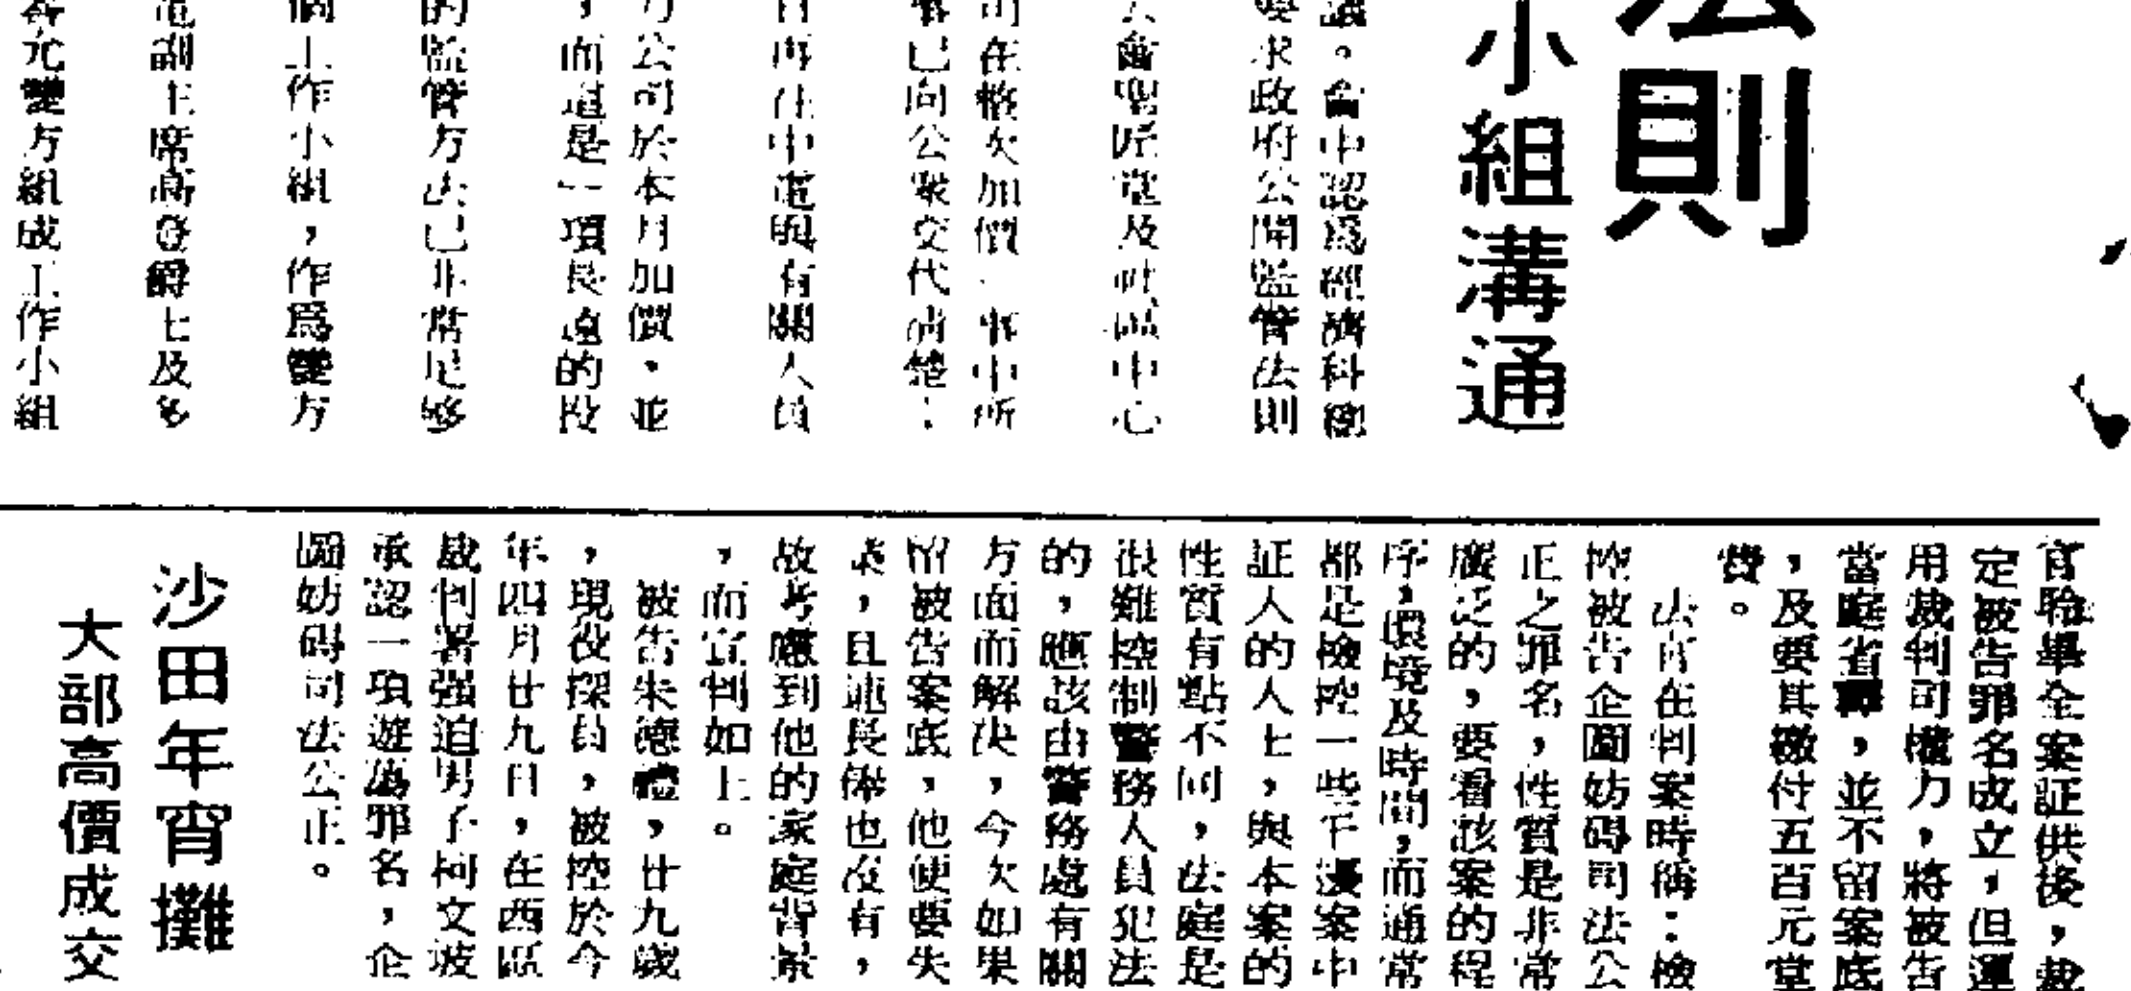 法則
小組溝通
議。會中認為經濟科總
要求政府公開監管法則
公會聖匠堂及社區中心
司在整次加價一事中所
響已向公眾交代清楚，
日再往中電與有關人員
力公司於本月加價，並
，而這是一項長遠的投
的監管方法已非常足夠
個工作小組，作爲雙方
電副主席高登爵士及多
容元雙方組成工作小組
官聆畢全案証供後，裁
定被告罪名成立，但運
用裁判司權力，將被告
當庭省釋，並不留案底
，及要其繳付五百元堂
費。
法官在判案時稱：檢
控被告企圖妨碍司法公
正之罪名，性質是非常
廣泛的，要看該案的程
序，環境及時間，而通常
都是檢控一些干擾案中
証人的人士，與本案的
性質有點不同，法庭是
很難控制警務人員犯法
的，應該由警務處有關
方面而解决，今次如果
留被告案底，他便要失
業，且連長俸也沒有，
故考慮到他的家庭背景
，而宣判如上。
被告朱德禮，廿九歲
，現役探員，被控於今
年四月廿九日，在西區
裁判署强迫男子柯文波
承認一項遊蕩罪名，企
圖妨碍司法公正。
沙田年宵攤
大部高價成交